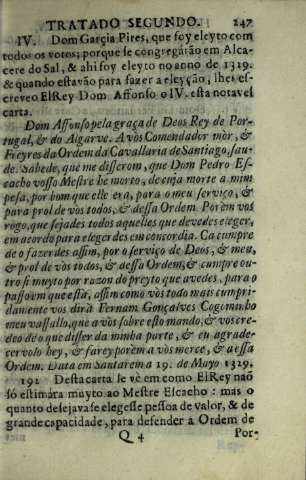 TRATADO SEGUNDO. 247
IV. Dom Garçia Pires, que foy eleyto com
todos os votos; porque se congregárão em Alca-
cere do Sal, & ahi foy eleyto no anno de 1319.
& quando estavão para fazer a eleyção, lhes es-
creveo ElRey Dom Affonso o IV. esta notavel
carta.
Dom Affonso pela graça de Deos Rey de Por-
tugal, & do Algarve. A vòs Comendador mòr, &
Freyres da Ordem da Cavallaria de Santiago, sau-
de. Sabede, que me disserom, que Dom Pedro Es-
cacho vosso Mestre he morto, de cuja morte a mim
pesa, por bom que elle era, para o meu serviço, &
para prol de vòs todos, & dessa Ordem. Porèm vos
rogo, que sejades todos aquelles que devedes eleger,
em acordo para elegerdes em concordia. Ca cumpre
de o fazerdes assim, por o serviço de Deos, & meu,
& prol de vòs todos, & dessa Ordem, & cumpre ou-
tro si muyto por razon do preyto que avedes, para o
passo em que està, assim como vòs todo mais cumpri-
damente vos dirà Fernam Gonçalves Cogominho
meu vassallo, que a vòs sobre esto mando; & vos cre-
deo de o que disser da minha parte, & eu agrade-
cervolo hey, & farey porèm a vòs merce, & a essa
Ordem. Data em Santarèm a 19. de Mayo 1319.
191 Desta carta se vè em como ElRey naõ
só estimára muyto ao Mestre Escacho: mas o
quanto desejava se elegesse pessoa de valor, & de
grande capacidade, para defender a Ordem de
Q 4 Por-